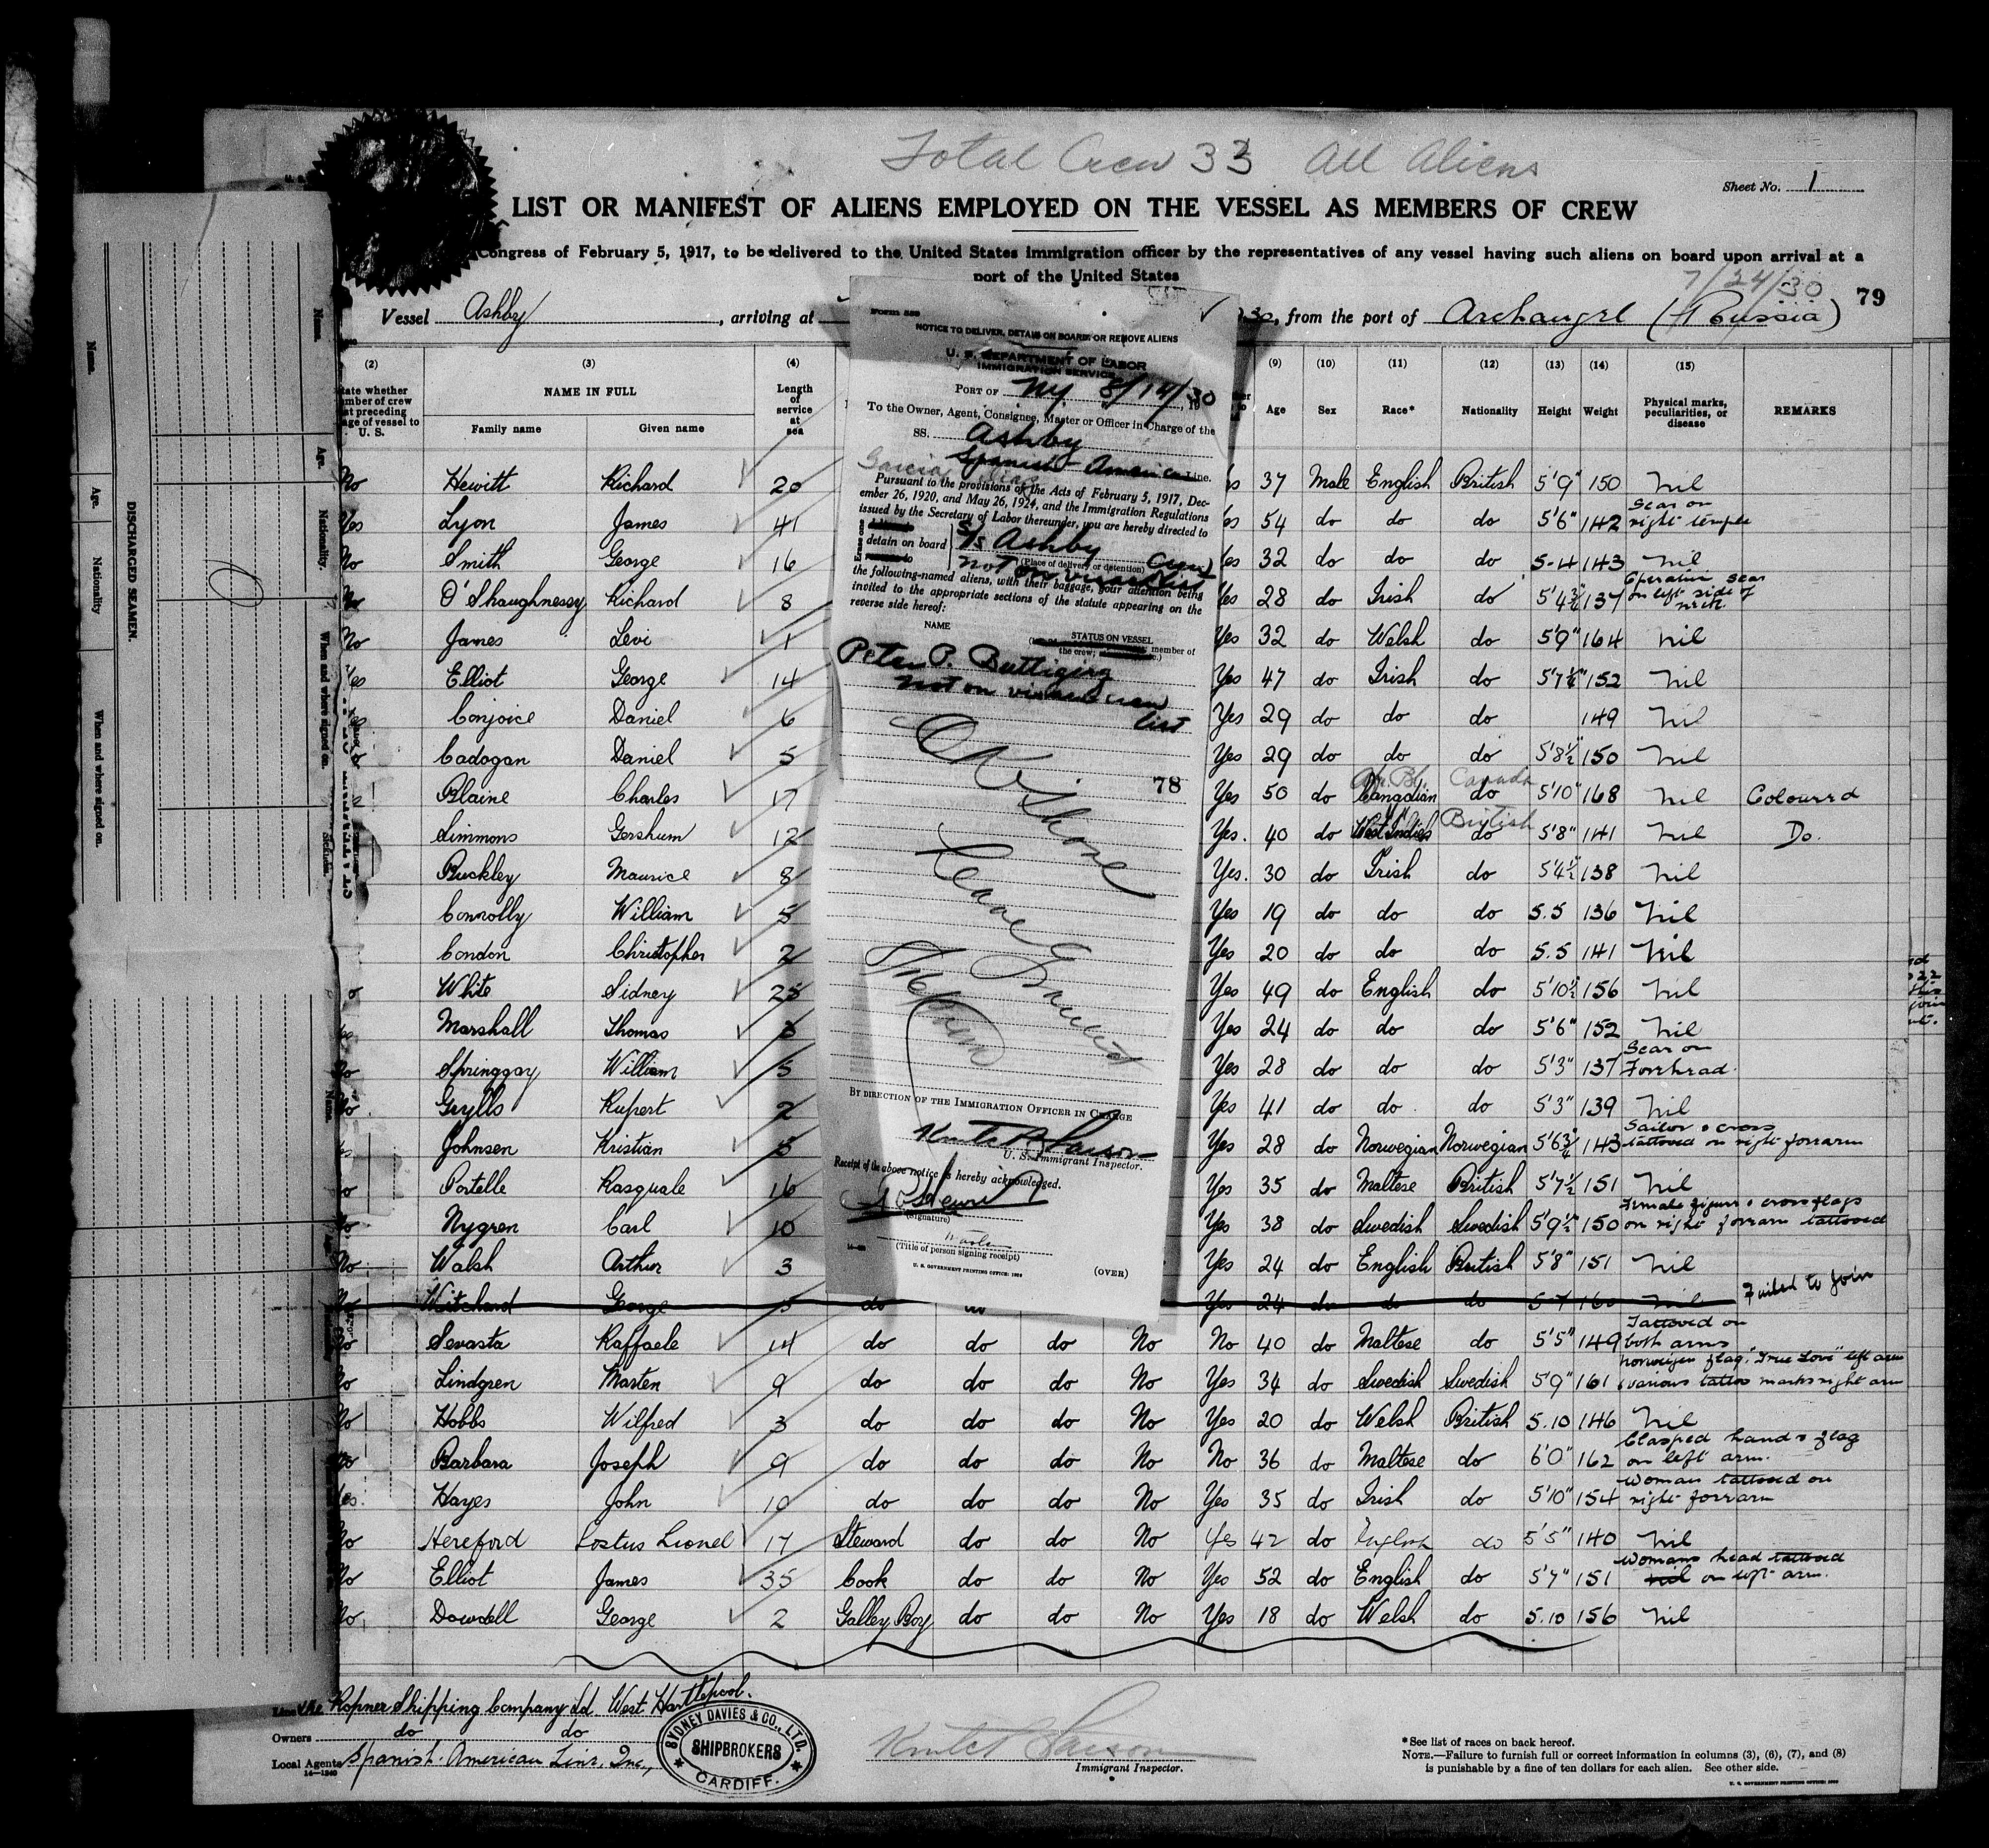 Total Crew 33 All Aliens
Sheet No. 1
LIST OR MANIFEST OF ALIENS EMPLOYED ON THE VESSEL AS MEMBERS OF CREW
Congress of February 5, 1917, to be delivered to the United States immigration officer by the representatives of any vessel having such aliens on board upon arrival at a
port of the United States
7/24/30
79
Vessel Ashby, arriving at
30, from the port of Archangel (Russia)
(2) (3) (4) (9) (10) (11) (12) (13) (14) (15)
NAME IN FULL
Family name Given name
Length of service at sea
Age Sex Race* Nationality Height Weight Physical marks, peculiarities, or disease REMARKS
No Hewitt Richard 20 37 Male English British 5'9" 150 Nil
Yes Lyon James 41 54 do do do 5'6" 142 Scar on right temple
No Smith George 16 Yes 32 do do do 5-4 143 Nil
O'Shaughnessy Richard 8 Yes 28 do Irish do 5'4¾ 137 Operation scar on left side of neck
No James Levi 1 Yes 32 do Welsh do 5'9" 164 Nil
Yes Elliot George 14 Yes 47 do Irish do 152 Nil
Conjoice Daniel 6 Yes 29 do do do 149 Nil
Cadogan Daniel 5 Yes 29 do do do 5'8½ 150 Nil
Blaine Charles 17 Yes 50 do Canadian do Canada 5'10" 168 Nil Coloured
Simmons Gershum 12 Yes. 40 do West Indies do British 5'8" 141 Nil Do.
Buckley Maurice 8 Yes. 30 do Irish do 5'4½ 138 Nil
Connolly William 5 Yes 19 do do do 5.5 136 Nil
Condon Christopher 2 Yes 20 do do do 5.5 141 Nil
White Sidney 25 Yes 49 do English do 5'10½ 156 Nil
Marshall Thomas 3 Yes 24 do do do 5'6" 152 Nil
Springgay William 5 Yes 28 do do do 5'3" 137 Scar on Forehead
Grylls Rupert 2 Yes 41 do do do 5'3" 139 Nil
Johnsen Kristian 5 Yes 28 do Norwegian Norwegian 5'6¾ 143 Sailor & cross tattooed on right forearm
Portelle Pasquale 16 Yes 35 do Maltese British 5'7½ 151 Nil
Nygren Carl 10 Yes 38 do Swedish Swedish 5'9½" 150 Female figure & cross flags on right forearm tattooed
No Walsh Arthur 3 Yes 24 do English British 5'8" 151 Nil
Witchard George 5 do Yes 24 do do do 5-7 160 Nil Failed to join
No Sevasta Raffaele 14 do do do No No 40 do Maltese do 5'5" 149 Tattooed on both arms
No Lindgren Marten 9 do do do No Yes 34 do Swedish Swedish 5'9" 161 Norwegian flag "True Love" left arm various tattoo marks right arm
No Hobbs Wilfred 3 do do do No Yes 20 do Welsh British 5.10 146 Nil
No Barbara Joseph 9 do do do No No 36 do Maltese do 6'0" 162 Clasped hands & flag on left arm.
Yes. Hayes John 10 do do do No Yes 35 do Irish do 5'10" 154 Woman tattooed on right forearm
No Hereford Lionel 17 Steward do do No Yes 42 do English do 5'5" 140 Nil
No Elliot James 35 Cook do do No Yes 52 do English do 5'7" 151 Womans head tattooed on left arm.
No Dowdell George 2 Galley Boy do do No Yes 18 do Welsh do 5.10 156 Nil
The Ropner Shipping Company Ld West Hartlepool.
Owners do do
Local Agents Spanish-American Line, Inc.,
14-1240
SYDNEY DAVIES & CO., LTD. SHIPBROKERS CARDIFF.
Immigrant Inspector.
*See list of races on back hereof.
NOTE.—Failure to furnish full or correct information in columns (3), (6), (7), and (8)
is punishable by a fine of ten dollars for each alien. See other side.
NOTICE TO DELIVER, DETAIN ON BOARD, OR REMOVE ALIENS
U. S. DEPARTMENT OF LABOR
IMMIGRATION SERVICE
PORT OF NY 8/14/30
To the Owner, Agent, Consignee, Master or Officer in Charge of the
SS. Ashby
Garcia Spanish American Line.
Pursuant to the provisions of the Acts of February 5, 1917, Dec-
ember 26, 1920, and May 26, 1924, and the Immigration Regulations
issued by the Secretary of Labor thereunder, you are hereby directed to
detain on board S/s Ashby
(Place of delivery or detention)
the following-named aliens, with their baggage, your attention being
invited to the appropriate sections of the statute appearing on the
reverse side hereof:
NAME STATUS ON VESSEL
member of
the crew;
Peter P. Buttigieg
Not on visaed crew
list
78
OK Shore
Leave
BY DIRECTION OF THE IMMIGRATION OFFICER IN CHARGE
U. S. Immigrant Inspector.
Receipt of the above notice is hereby acknowledged.
(Signature)
(Title of person signing receipt)
U. S. GOVERNMENT PRINTING OFFICE
(OVER)
DISCHARGED SEAMEN.
Name. Age. Nationality When and where signed on.
Name. Age. Nationality When and where signed on.